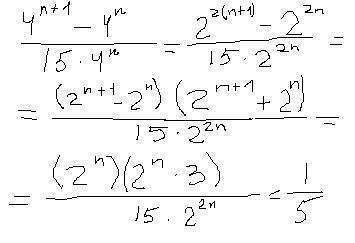 (4^{n+1} - 4^n)/(15 · 4^n) = (2^{2(n+1)} - 2^{2n})/(15 · 2^{2n}) =
= ((2^{n+1} - 2^n)(2^{n+1} + 2^n))/(15 · 2^{2n}) =
= ((2^n)(2^n · 3))/(15 · 2^{2n}) = 1/5